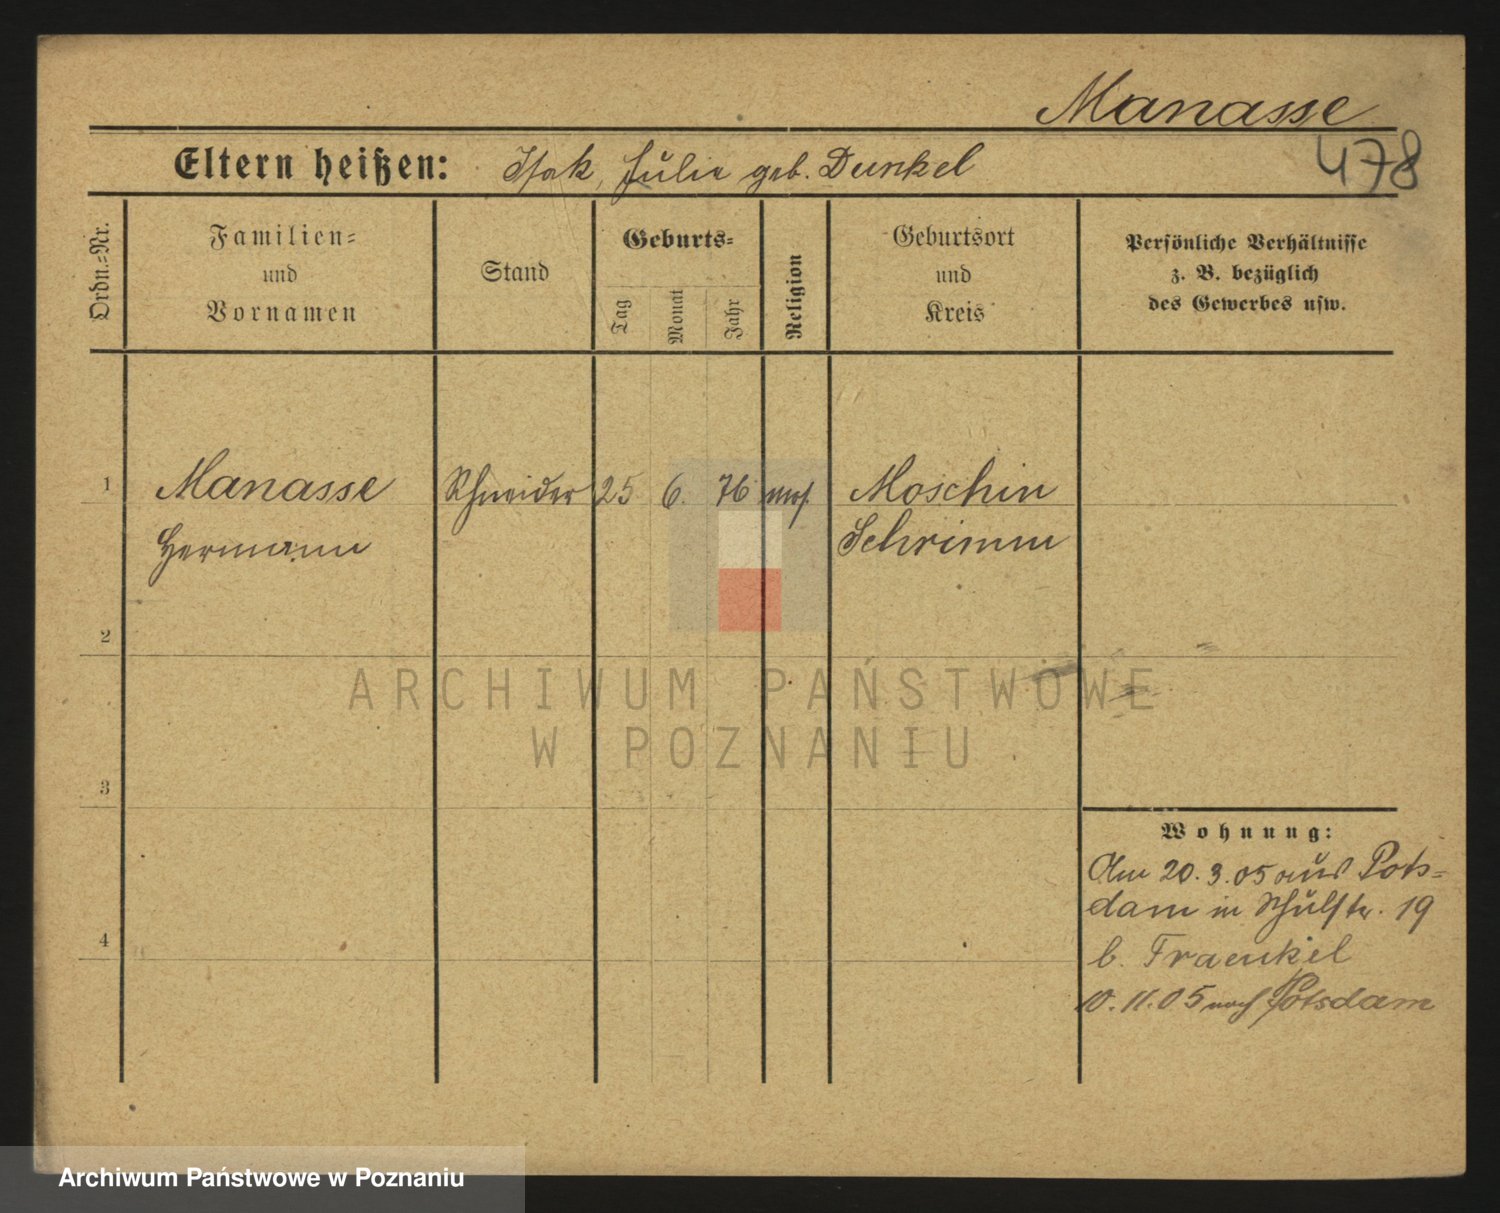 Manasse
478
Eltern heißen: Isak, Julie geb. Dunkel
Ordn.-Nr.
Familien-
und
Vornamen
Stand
Geburts-
Tag
Monat
Jahr
Religion
Geburtsort
und
Kreis
Persönliche Verhältnisse
z. B. bezüglich
des Gewerbes usw.
1 Manasse Schneider 25 6. 76 mos. Moschin
Hermann Schrimm
2
3
4
ARCHIWUM PAŃSTWOWE
W POZNANIU
Wohnung:
Am 20.3.05 aus Pots-
dam in Schulstr. 19
b. Fraenkel
10.11.05 nach Potsdam
Archiwum Państwowe w Poznaniu